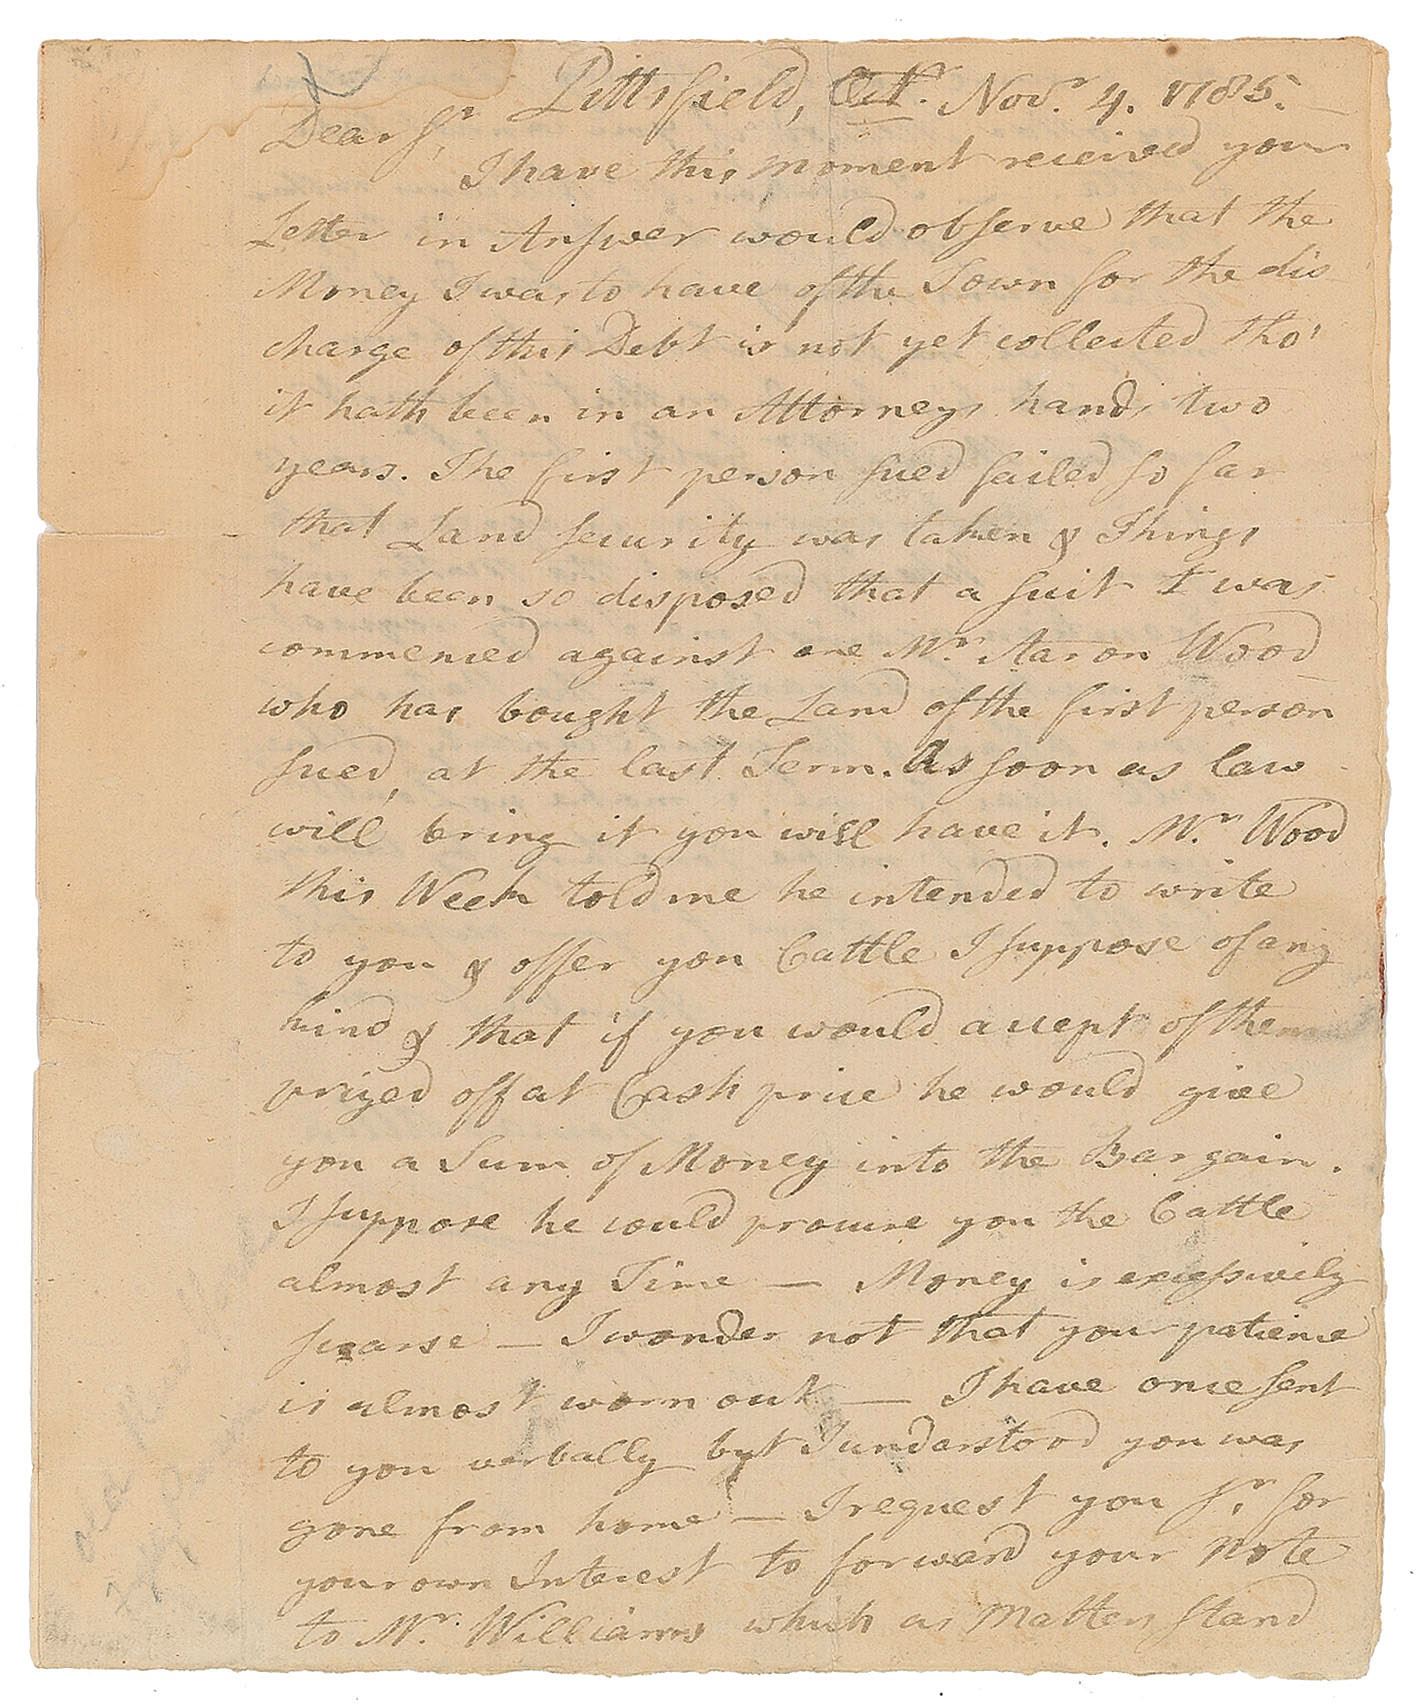 Pittsfield, Oct.r Nov.r 4. 1785.
Dear Sr,
I have this moment received your
Letter in Answer would observe that the
Money I was to have of the Town for the dis
charge of this Debt is not yet collected tho'
it hath been in an Attorneys hands two
years. The first person sued failed so far
that Land security was taken & Things
have been so disposed that a suit I was
commenced against one Mr. Aaron Wood
who has bought the Land of the first person
sued, at the last Term. As soon as law
will bring it you will have it. Mr. Wood
this Week told me he intended to write
to you & offer you Cattle I suppose of any
kind & that if you would accept of them
prized off at Cash price he would give
you a Sum of Money into the Bargain.
I suppose he could procure you the Cattle
almost any Time — Money is excessively
scarse — I wonder not that your patience
is almost worn out — I have once sent
to you verbally but I understood you was
gone from home — I request you Sr. for
your own Interest to forward your Note
to Mr. Williams which as Matters stand